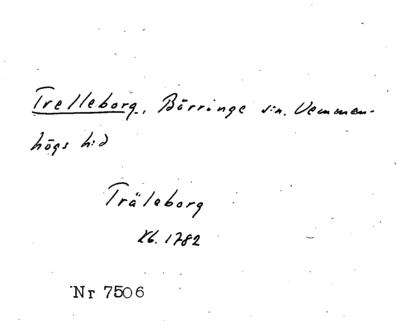 Trelleborg, Börringe sn. Vemmen-
högs hd
Träleborg
Kb. 1782
Nr 7506